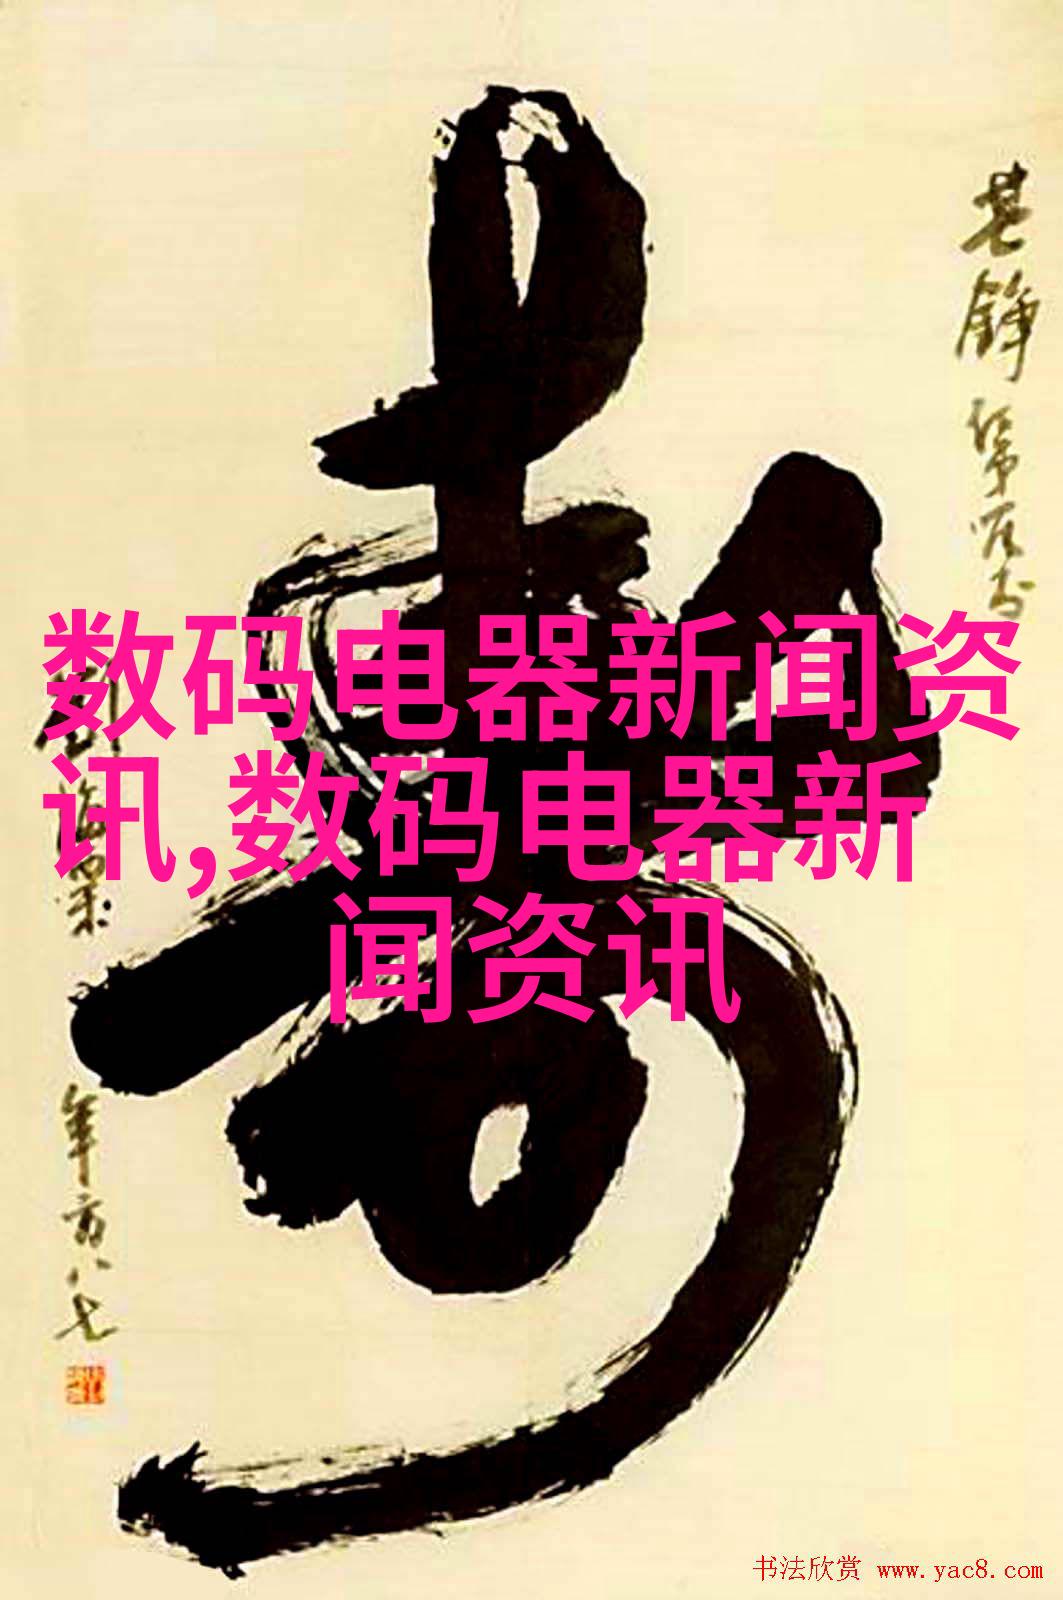 寿
数码电器新闻资
讯,数码电器新
闻资讯
年方八七
书法欣赏 www.yac8.com